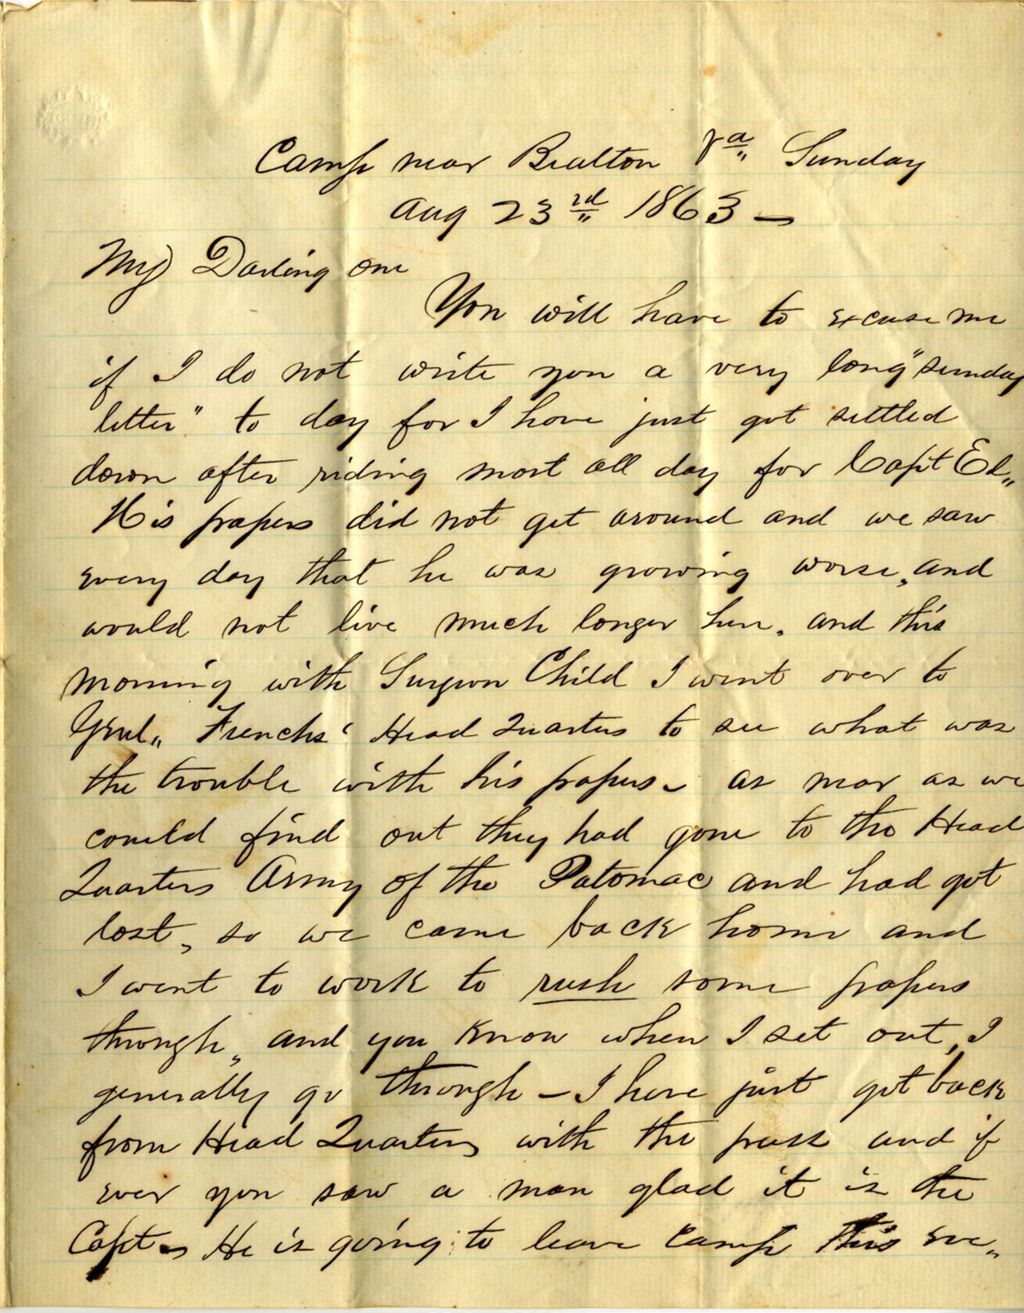 Camp near Bealton Va Sunday
Aug 23rd 1863 –
My Darling one
You will have to excuse me
if I do not write you a very long "sunday
letter" to day for I have just got settled
down after riding most all day for Capt Ed„
His papers did not get around and we saw
every day that he was growing worse, and
would not live much longer here. and this
morning with Surgeon Child I went over to
Genl„ Frenchs' Head Quarters to see what was
the trouble with his papers – as near as we
could find out they had gone to the Head
Quarters Army of the Potomac and had got
lost, so we came back home and
I went to work to rush some papers
through, and you know when I set out, I
generally go through – I have just got back
from Head Quarters with the pass and if
ever you saw a man glad it is the
Capt – He is going to leave camp this eve„